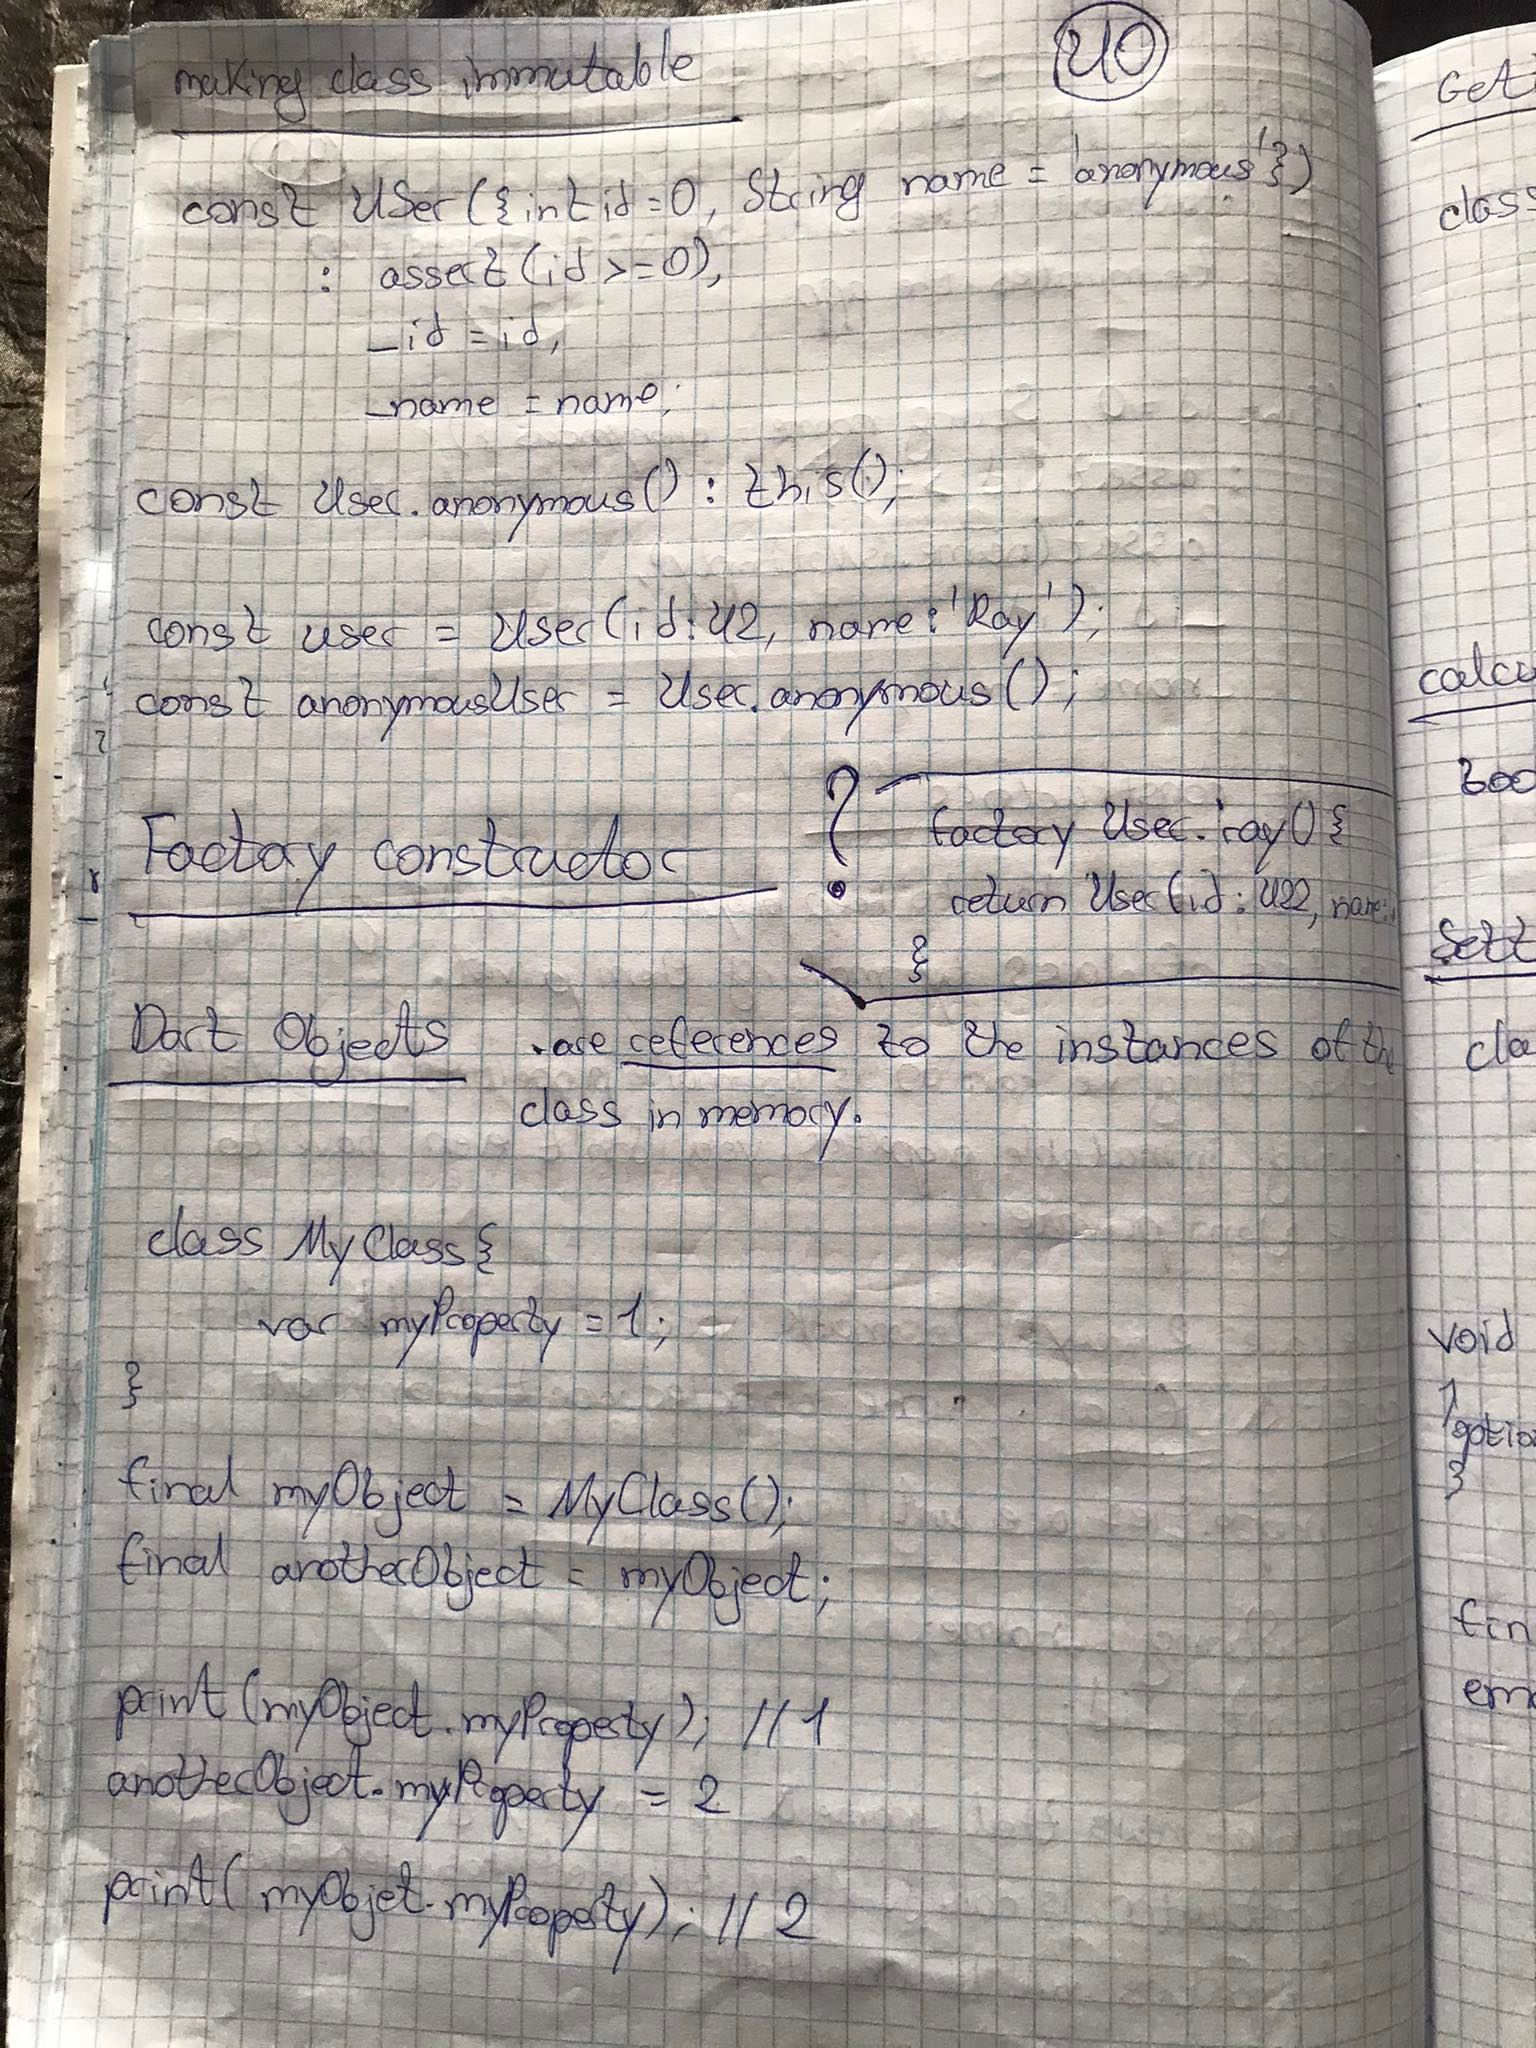 making class immutable
40
const User({int id=0, String name = 'anonymous'})
: assert(id >=0),
_id = id,
_name = name;
const User.anonymous() : this();
const user = User(id:42, name:'Ray');
const anonymousUser = User.anonymous();
Factory constructor
?
factory User.ray(){
return User(id: 422, name:
}
Dart Objects .are references to the instances of the
class in memory.
class MyClass{
var myProperty = 1;
}
final myObject = MyClass();
final anotherObject = myObject;
print(myObject.myProperty); //1
anotherObject.myProperty = 2
print( myObjet.myProperty); //2
class
void
}